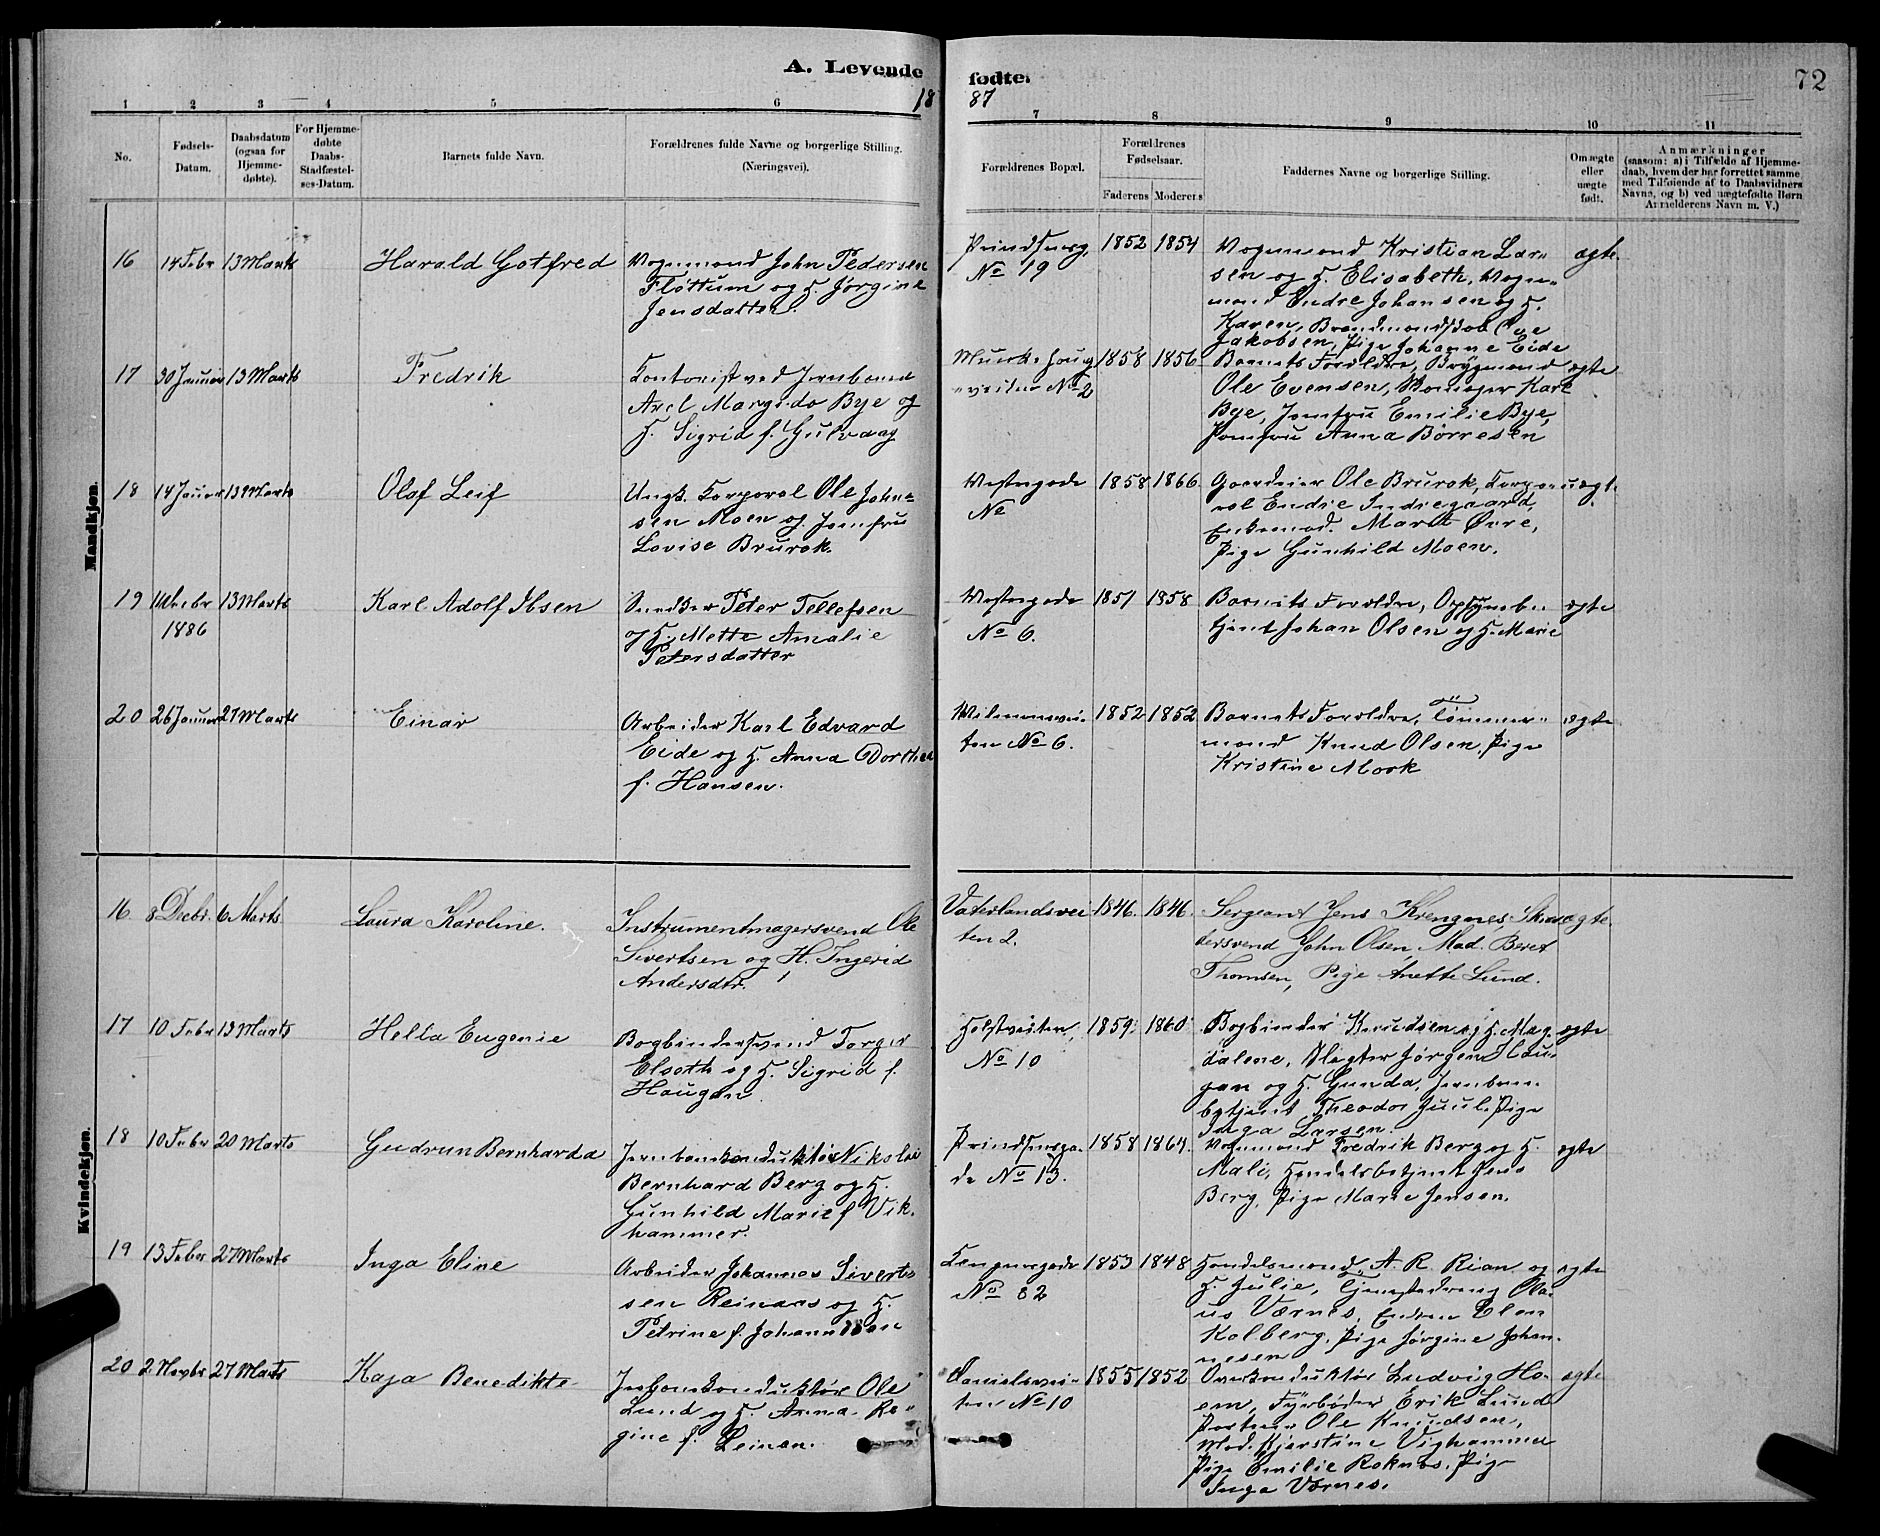 A. Levende fødte.
1887
72
1 2 3 4 5 6 7 8 9 10 11
No.
Fødsels-Datum.
Daabsdatum (ogsaa for Hjemme-døbte).
For Hjemme-døbte Daabs-Stadfæstel-ses-Datum.
Barnets fulde Navn.
Forældrenes fulde Navne og borgerlige Stilling. (Næringsvei).
Forældrenes Bopæl.
Forældrenes Fødselsaar.
Faderens Moderens
Faddernes Navne og borgerlige Stilling.
Om ægte eller uægte født.
Anmærkninger
(saasom: a) i Tilfælde af Hjemme-
daab, hvem der har forrettet samme
med Tilføiende af to Daabsvidners
Navne, og b) ved uægtefødte Børn
Anmelderens Navn m. V.)
Mandkjøn.
16 14 Febr 13 Marts Harald Gotfred
Vognmand John Pedersen
Fløttum og H. Jørgine
Jensdatter.
Prindsensg.
No 19
1852 1854
Vognmand Kristian Lar-
sen og H. Elisabeth, Vogn-
mand Endre Johansen og H.
Karen, Brandmandskab Ove
Jakobsen, Pige Johanne Eide
ægte
17 30 Januar 13 Marts Fredrik
Kontorist ved Jernbanen
Axel Margido Bye og
H. Sigrid f. Gulvaag
Munkhaug
veiten No 2
1858 1856
Barnets Forældre, Brygmand
Ole Evensen, Karl
Bye, Jomfru Emilie Bye,
Jomfru Anna Børresen
ægte
18 14 Januar 13 Marts Olaf Leif
Ungk. Korporal Ole John-
sen Moen og Jomfru
Lovise Brurok.
Vestergade
No
1858 1866
Gaardeier Ole Brurok, Korpo-
ral Endre Indregaard,
Enkemad. Marit Øvre,
Pige Gunhild Moen.
uægt.
19 13 Marts Karl Adolf Ibsen
1886
Snedker Peter Tellefsen
og H. Mette Amalie
Petersdatter
Vestergade
No 6.
1851 1858
Barnets Forældre, Opsynsbe-
tjent Johan Olsen og H. Marie
ægte
20 26 Januar 27 Marts Einar
Arbeider Karl Edvard
Eide og H. Anna Dorthea
f. Hansen.
ten No 6.
1852 1852
Barnets Forældre, Tømmer-
mand Knud Olsen, Pige
Kristine Mook
ægte
Kvindekjøn.
16 8 Decbr. 6 Marts Laura Karoline.
Instrumentmagersvend Ole
Sivertsen og H. Ingerid
Andersdtr.
Vaterlandsvei
ten 2.
1846. 1846.
Sergeant Jens Krengnes, Skræd-
dersvend John Olsen, Mad. Beret
Thomsen, Pige Anette Lund.
ægte.
17 10 Febr 13 Marts Hella Eugenie
Bogbindersvend Torger
Elseth og H. Sigrid f.
Haugan.
Holstveiten
No 10
1859. 1860
Bogbinder Knudsen og H. Mag-
dalene, Slagter Jørgen Hau-
gan og H. Gunda, Jernban-
betjent Theodor Juul, Pige
Inga Larsen.
ægte
18 10 Febr 20 Marts Gudrun Bernharda
Jernbankonduktør Nikolai
Bernhard Berg og H.
Gunhild Marie f. Vik-
hammer.
Prindsensga-
de No 13.
1858 1864.
Vognmand Fredrik Berg og H.
Mali, Handelsbetjent Jens
Berg, Pige Marie Jensen.
ægte
19 13 Febr 27 Marts Inga Eline
Arbeider Johannes Siverts
sen Reinaas og H.
Petrine f. Johannesen
Kongensgade
No 82
1853 1848
Handelsmand A. R. Rian og
H. Julie, Tjenestedreng Ola-
us Værnes, Enken Elen
Kolberg, Pige Jørgine Johan-
nesen
ægte
20 2 Novbr 27 Marts Kaja Benedikte
Jernbankonduktør Ole
Lund og H. Anna Re-
gine f. Leinan.
Danielsvei-
ten No 10
1855 1852
Overkonduktør Ludvig Ho-
em, Fyrbøder Erik Lund
Portner Ole Knudsen,
Mad. Kjerstine Vighammer
Pige Emilie Roknes, Pige
Inga Værnes.
ægte